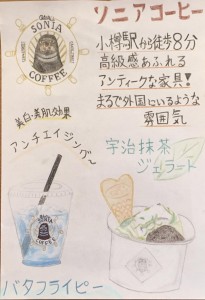 ソニアコーヒー
SONIA
COFFEE
小樽駅から徒歩8分
高級感あふれる
アンティークな家具!
まるで外国にいるような
雰囲気
美白・美肌効果
アンチエイジング〜
宇治抹茶
ジェラート
SONIA
COFFEE
バタフライピー